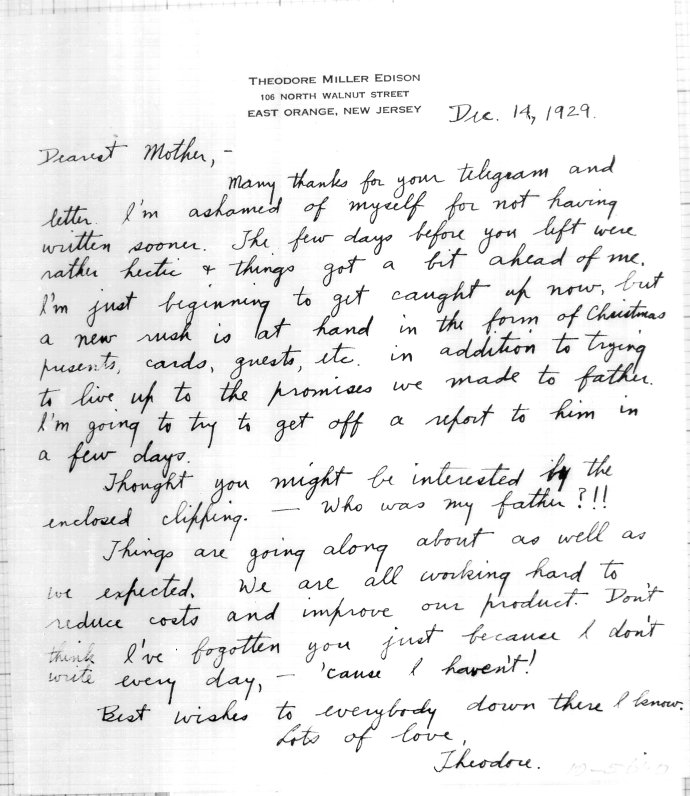 THEODORE MILLER EDISON
106 NORTH WALNUT STREET
EAST ORANGE, NEW JERSEY
Dec. 14, 1929.
Dearest Mother, –
Many thanks for your telegram and
letter. I'm ashamed of myself for not having
written sooner. The few days before you left were
rather hectic & things got a bit ahead of me.
I'm just beginning to get caught up now, but
a new rush is at hand in the form of Christmas
presents, cards, guests, etc. in addition to trying
to live up to the promises we made to father.
I'm going to try to get off a report to him in
a few days.
Thought you might be interested by the
enclosed clipping. – Who was my father?!!!
Things are going along about as well as
we expected. We are all working hard to
reduce costs and improve our product. Don't
think I've fogotten you just because I don't
write every day, – 'cause I haven't!
Best wishes to everybody down there I know.
Lots of love,
Theodore.